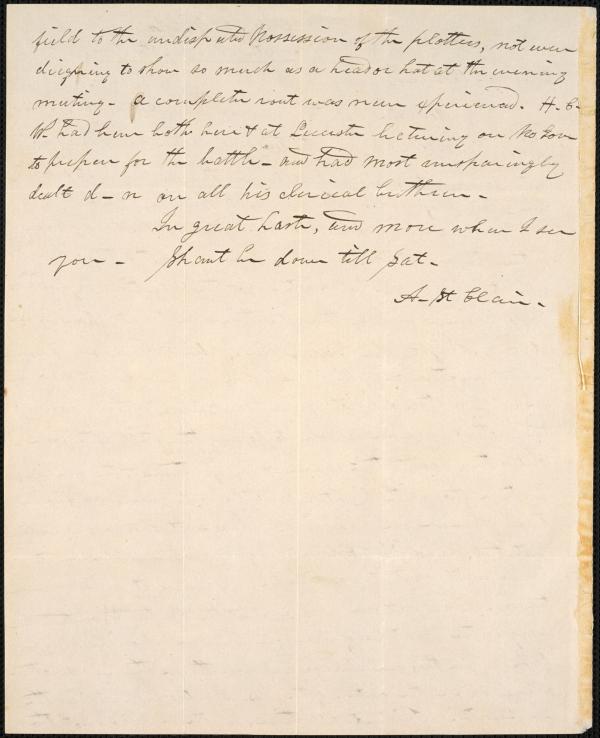 field to the undisputed possession of the plotters, not even
deigning to show so much as a head or hat at the evening
meeting - a complete rout was never experienced. H. C.
W. had been both here & at Leicester lecturing on No Gov
to prepare for the battle - and had most unsparingly
dealt d - n on all his clerical brethren -
In great haste, and more when I see
you - Shant be down till Sat -
A - St Clair -